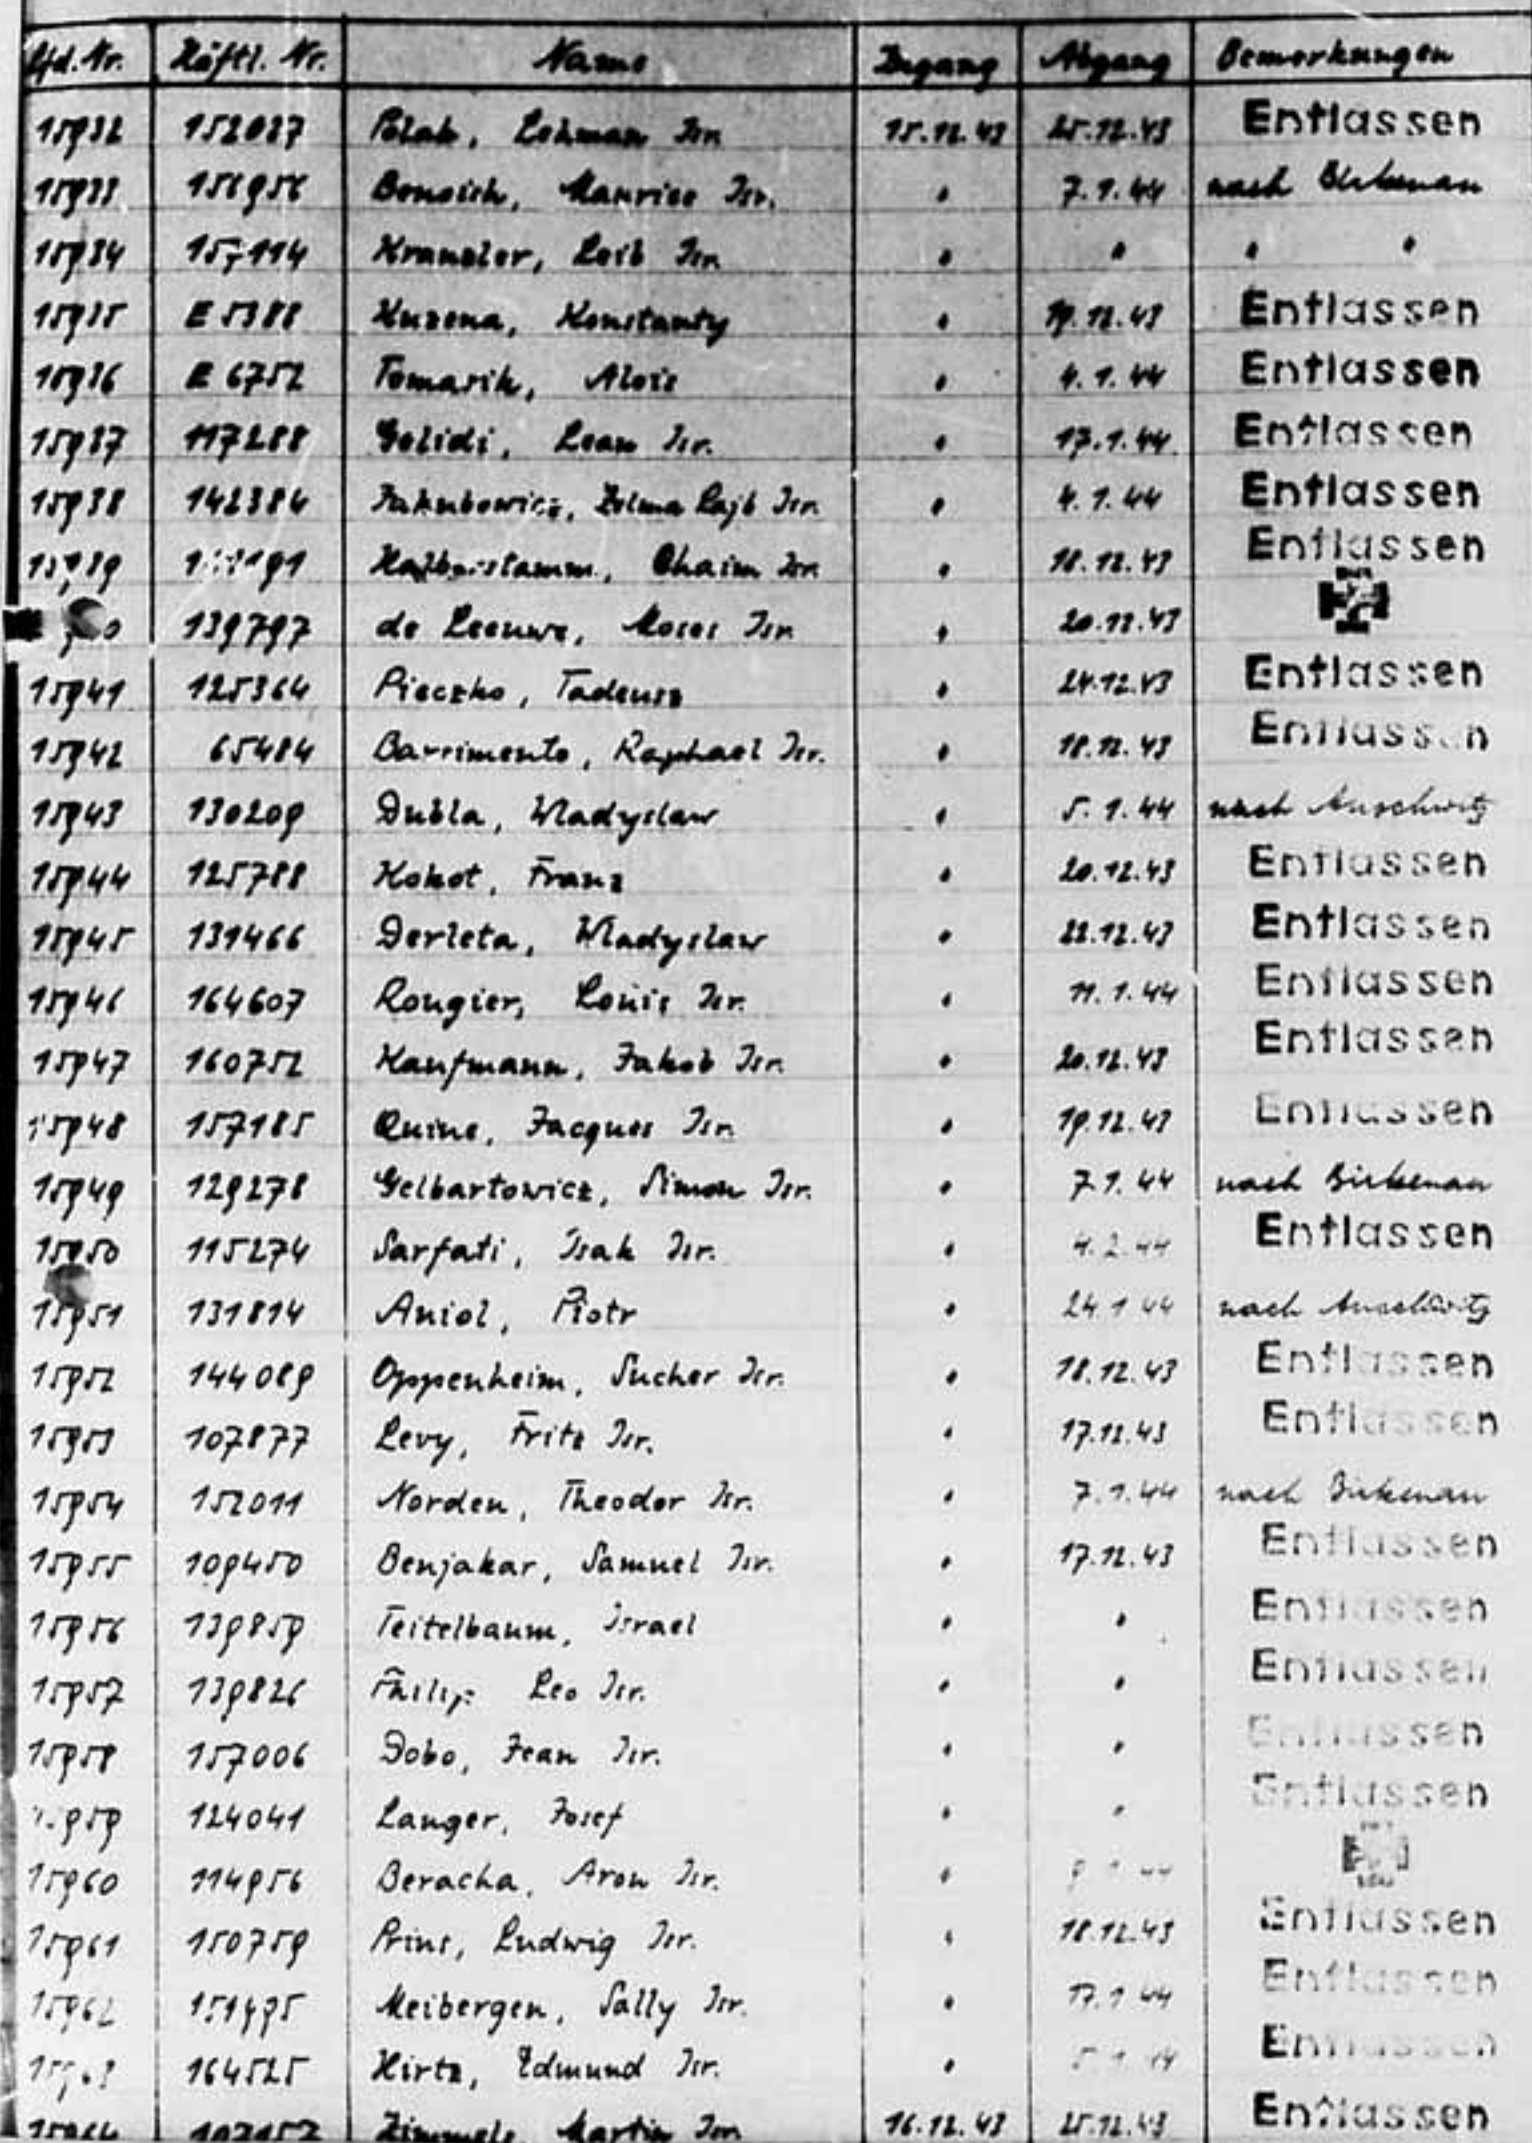 Lfd. Nr. Häftl. Nr. Name Zugang Abgang Bemerkungen
15932 152027 Polak, Lehman Isr. 15.12.43 25.12.43 Entlassen
15933 156956 Bonoich, Maurice Isr. " 7.1.44 nach Birkenau
15934 157114 Kranzler, Leib Isr. " " " "
15935 E 5388 Kuzena, Konstanty " 19.12.43 Entlassen
15936 E 6752 Tomasik, Alois " 4.1.44 Entlassen
15937 117288 Golidi, Lean Isr. " 17.1.44 Entlassen
15938 142384 Jakubowicz, Zelma Lajb Isr. " 4.1.44 Entlassen
15939 Halberstamm, Chaim Isr. " 18.12.43 Entlassen
139797 de Leeuwe, Moses Isr. " 20.12.43
15941 125364 Pieczko, Tadeusz " 24.12.43 Entlassen
15942 65484 Barrimento, Raphael Isr. " 18.12.43 Entlassen
15943 130209 Dubla, Wladyslaw " 5.1.44 nach Auschwitz
15944 125788 Kokot, Franz " 20.12.43 Entlassen
15945 131466 Derleta, Wladyslaw " 22.12.43 Entlassen
15946 164607 Rougier, Louis Isr. " 11.1.44 Entlassen
15947 160752 Kaufmann, Jakob Isr. " 20.12.43 Entlassen
15948 157185 Quine, Jacques Isr. " 19.12.43 Entlassen
15949 129278 Gelbartowicz, Simon Isr. " 7.1.44 nach Birkenau
15950 115274 Sarfati, Isak Isr. " 4.2.44 Entlassen
15951 131814 Aniol, Piotr " 24.1.44 nach Auschwitz
15952 144089 Oppenheim, Sucher Isr. " 18.12.43 Entlassen
15953 107877 Levy, Fritz Isr. " 17.12.43 Entlassen
15954 152011 Norden, Theodor Isr. " 7.1.44 nach Birkenau
15955 109450 Benjakar, Samuel Isr. " 17.12.43 Entlassen
15956 139859 Teitelbaum, Israel " " Entlassen
15957 139826 Philip, Leo Isr. " " Entlassen
15958 157006 Dobo, Jean Isr. " " Entlassen
15959 124041 Langer, Josef " " Entlassen
15960 114956 Beracha, Aron Isr. "
15961 150759 Prins, Ludwig Isr. " 18.12.43 Entlassen
15962 151495 Meibergen, Sally Isr. " 17.1.44 Entlassen
15963 164525 Hirtz, Edmund Isr. " 5.1.44 Entlassen
15964 107157 Zimmels, Martin Isr. 16.12.43 25.12.43 Entlassen